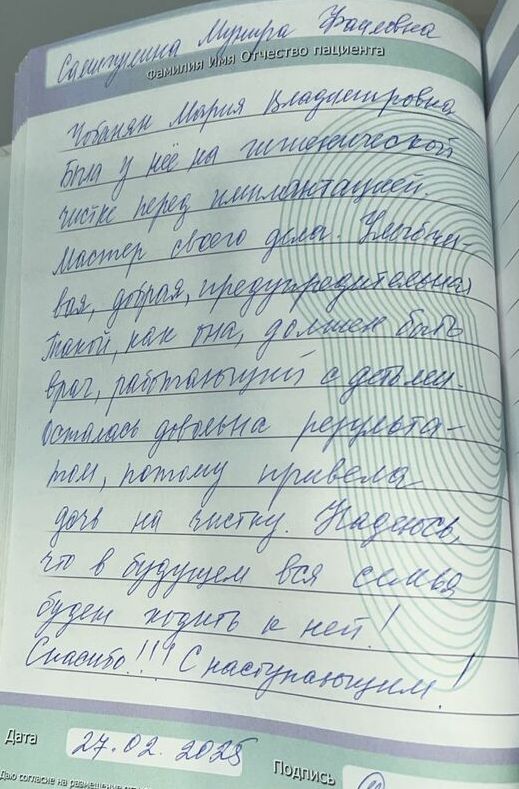 Саетгулина Мунира Фаиловна
Фамилия Имя Отчество пациента
Чобанян Мария Владимировна
Была у неё на гигиенической
чистке перед имплантацией.
Мастер своего дела. Улыбчи-
вая, добрая, предупредительная
Такой, как она, должен быть
врач, работающий с детьми.
Осталась довольна результа-
том, потому привела
дочь на чистку. Надеюсь,
что в будущем вся семья
будет ходить к ней!
Спасибо!!! С наступающим!
Дата 27.02.2025
Подпись
Даю согласие на размещение